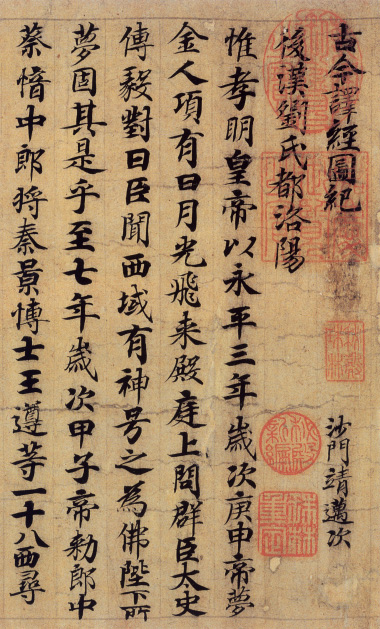 古今譯經圖紀
沙門靖邁次
後漢劉氏都洛陽
惟孝明皇帝以永平三年歲次庚申帝夢
金人項有日月光飛来殿庭上問群臣太史
傅毅對曰臣聞西域有神号之為佛陛下所
夢固其是乎至七年歲次甲子帝勑郎中
蔡愔中郎將秦景博士王遵等一十八西尋